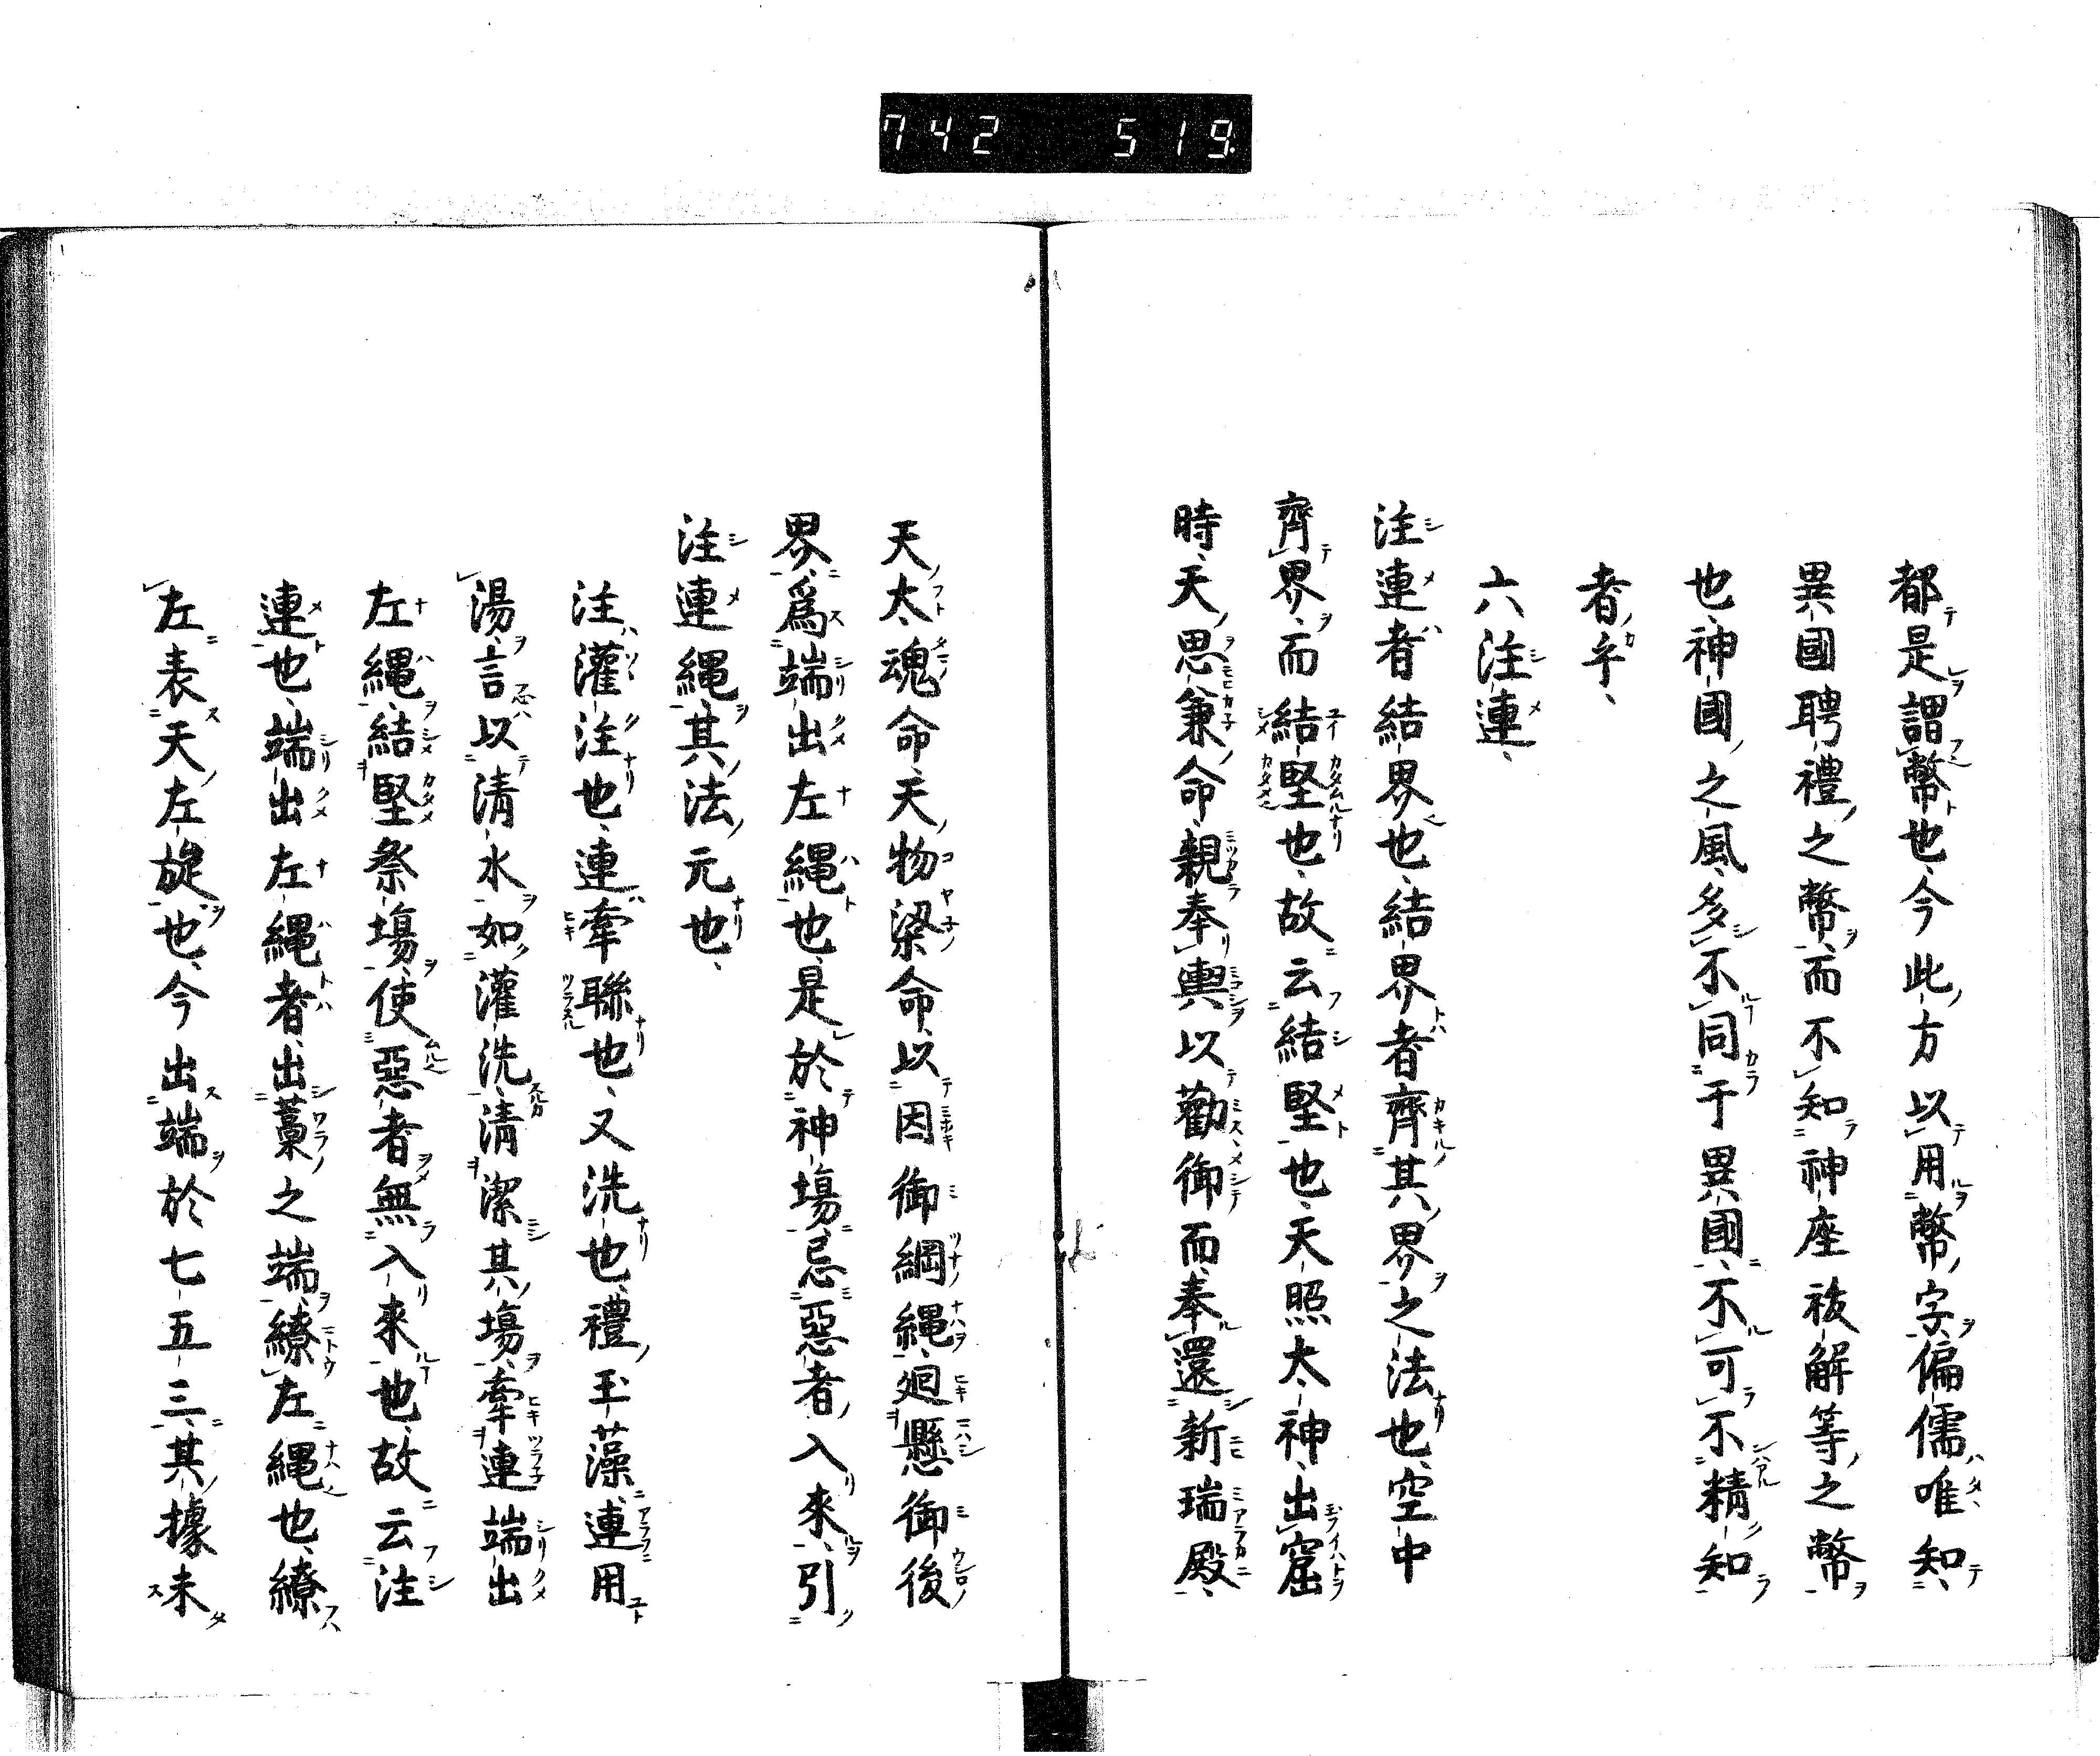 742 519
都是謂幣也、今此方以用幣字偏儒唯知、
異國聘禮之幣、而不知神座祓解等之幣
也、神國之風、多不同于異國、不可不精知
者乎、
六注連、
注連者結界也、結界者齊其界之法也、空中
齊界、而結堅也、故云結堅也、天照太神、出窟
時、天思兼命、親奉輿以勸御而、奉還新瑞殿、
天太魂命、天物梁命、以因御綱縄、廻懸御後
界、爲端出左縄也、是於神塲、忌惡者入來、引
注連縄、其法元也、
注灌注也、連牽聯也、又洗也、禮玉藻、連用
湯、言以清水如灌洗、清潔其塲、牽連端出
左縄、結堅祭塲、使惡者無入來也、故云注
連也、端出左縄者、出藁之端、繚左縄也、繚
左表天左旋也、今出端於七五三、其據未